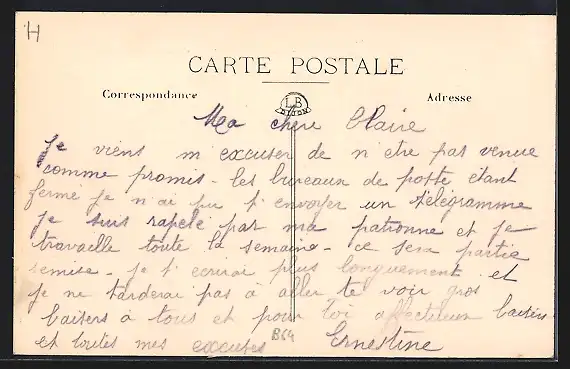 H
CARTE POSTALE
Correspondance
LB
DIJON
Adresse
Ma chere Claire
Je viens m excuser de n etre pas venue
comme promis - les bureaux de poste étant
fermé je n ai pu t envoyer un télégramme
je suis rapelé par ma patronne et je
travaille toute la semaine - ce sera partie
remise - je t ecrirai plus longuement et
je ne tarderai pas à aller te voir gros
baisers à tous et pour toi affectueux baisers
et toutes mes excuses
B64
Ernestine